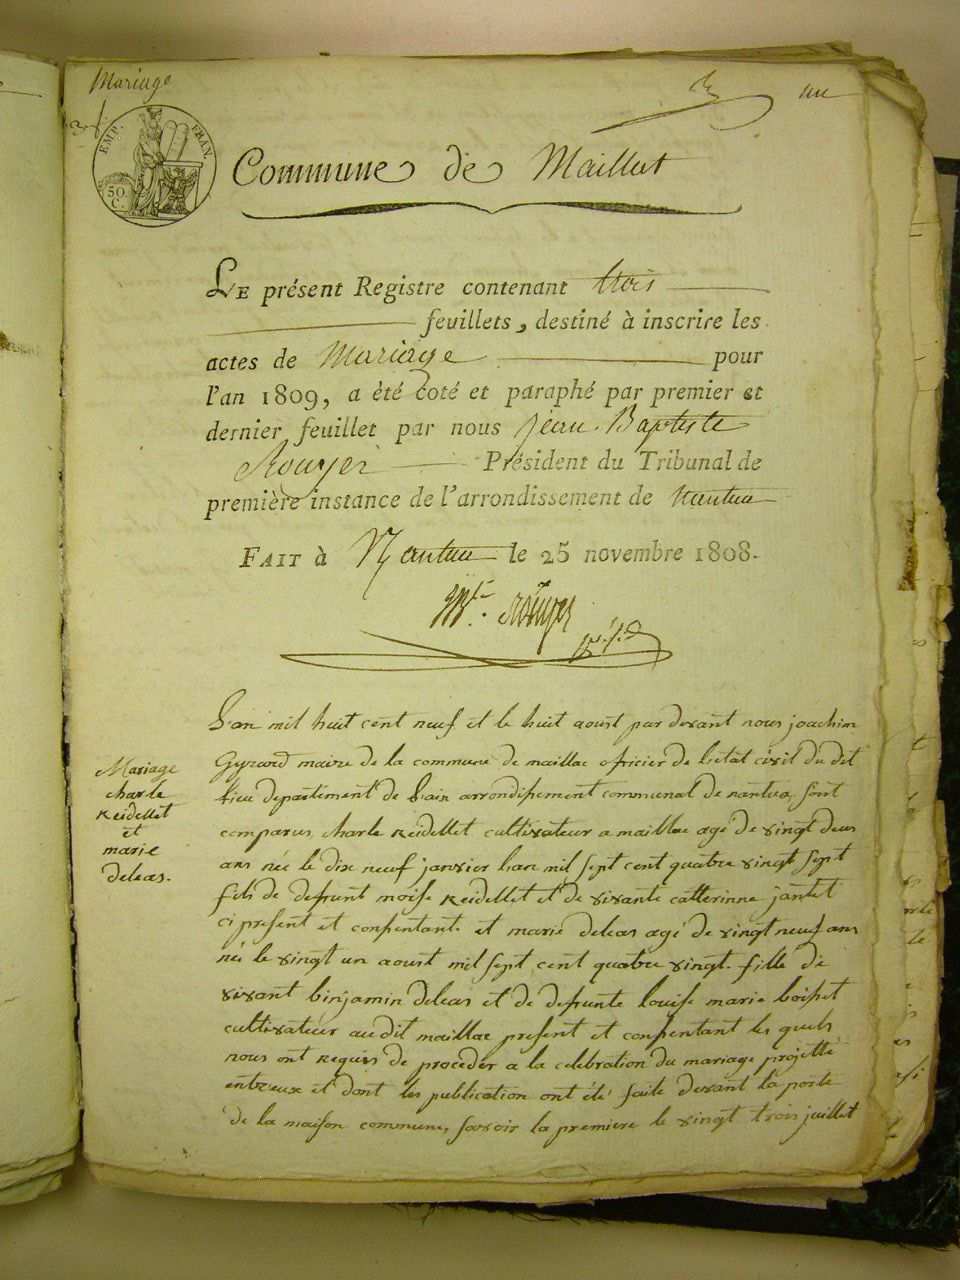 Mariage
une
EMP. FRAN.
50. C.
Commune de Maillat
LE présent Registre contenant trois
feuillets, destiné à inscrire les
actes de Mariage pour
l'an 1809, a été coté et paraphé par premier et
dernier feuillet par nous Jean-Baptiste
Rouyer Président du Tribunal de
première instance de l'arrondissement de Nantua
FAIT à Nantua le 25 novembre 1808.
Bte. Rouyer
L'an mil huit cent neuf et le huit aoust par devant nous joachim
Gyrard maire de la commune de maillac officier de l'etat civil du dit
lieu departement de L'ain arrondissement communal de nantua sont
comparus charle Reidellet cultivateur a maillac agé de vingt deux
ans née le dix neuf janvier lan mil sept cent quatre vingt sept
fils de defrunt Reidellet et de vivante catterinne jantet
ci present et consentante et marie deleas agé de vingt neuf ans
née le vingt un aoust mil sept cent quatre vingt. fille de
vivant binjamin deleas et de defrunte louise marie boisset
cultivateur au dit maillac present et consentant les quels
nous ont requis de proceder a la celebration du mariage projetté
entreux et dont les publication ont été faite devant la porte
de la maison commune, savoir la premiere le vingt trois juillet
Mariage
charle
Reidellet
et
marie
deleas.